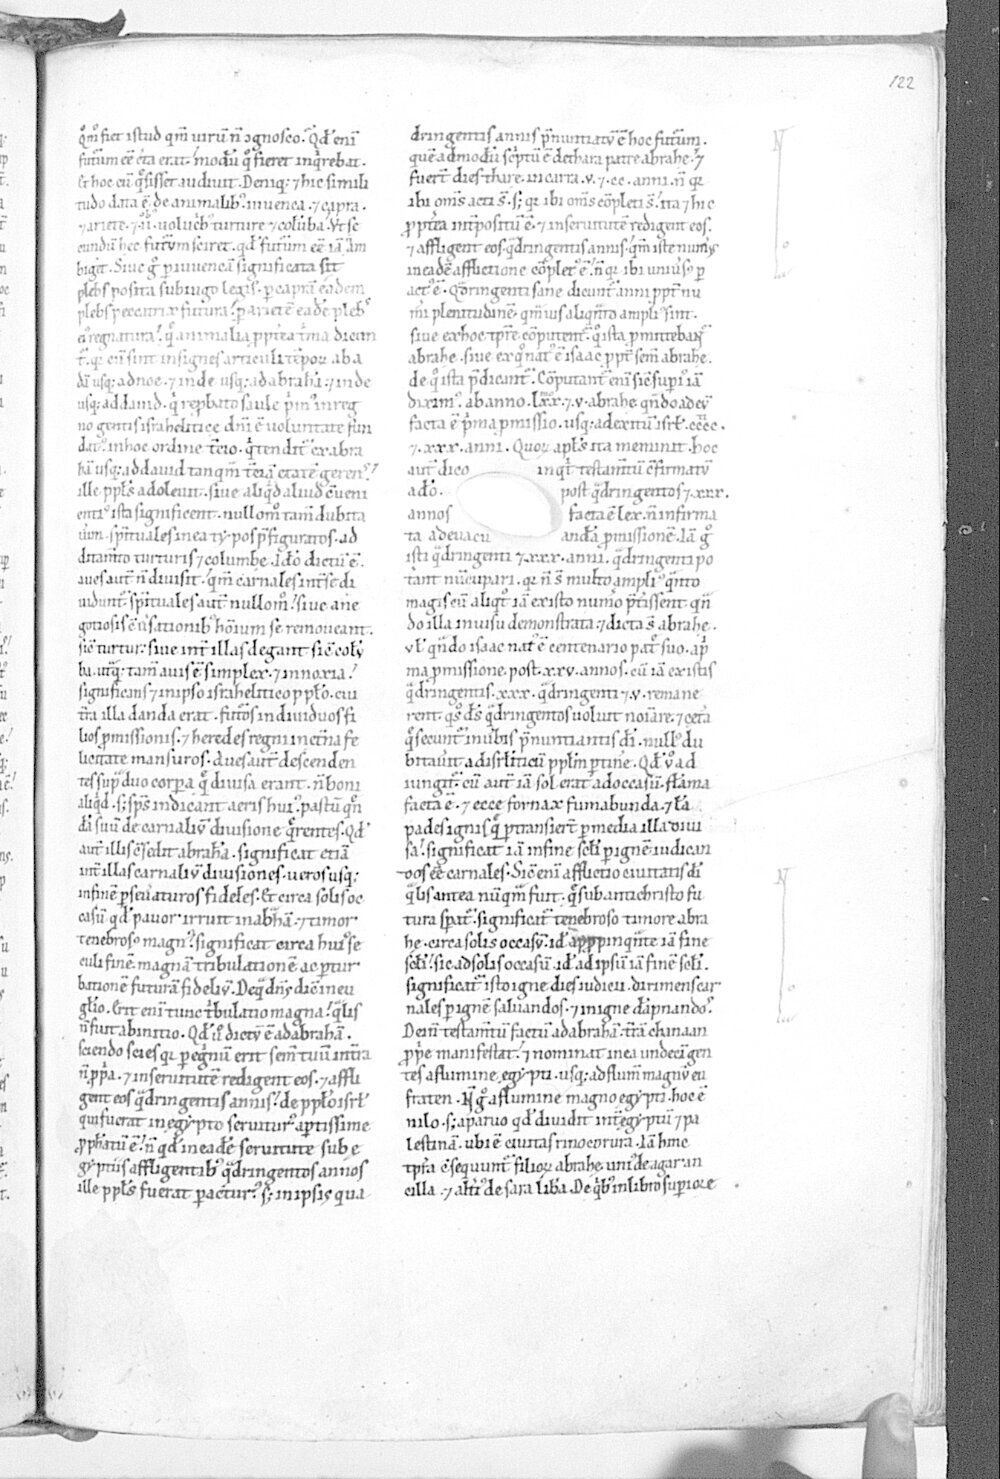 122
q̊m̊ fiet istud qm̄ uirū n̄ ꝯgnosco. Qd̕ eni
futurū eē c̄ta erat. modū q̊ fieret inq̇rebat.
Et hoc cū q̄sisset audiuit. Deniq; ⁊ hic simili
tudo data ē. de animalib᷒. iuuenca. ⁊ capra.
⁊ ariete. ⁊ ii. uolucb᷒ turture ⁊ colūba. Vt se
cundū hec futurū sciret. qd̕ futurū eē iā n̄ am
bigit. Siue g̊ p̱ iuuencā significata sit
plebs posita sub iugo legis. p̱ caprā eadem
plebs peccatrix futura. p̱ arietē eadē pleb᷒
ē regnatura. q̄ animalia ppt̕ea t̕ma dicun
t᷒. qr cū sint insignes articuli tēpoꝝ ab a
dā usq; ad noe. ⁊ inde usq; ad abrahā. ⁊ inde
usq; ad dauid. q̇ rep̱bato saule p̕m᷒ in reg
no gentis israhelitice dn̄i ē uoluntate fun
dat᷒. in hoc ordine t̄cio. q̇ tendit᷒ ex abra
hā usq; ad dauid tanqm̄ t̄ciā etatē gerens
ille ppl̄s adoleuit. siue aliq̇d aliud ꝯueni
enti᷒ ista significent. nullom̊ tam̄ dubita
uim̄. sp̄ituales in ea ty.pos p̄figuratos. ad
ditam̄to turturis ⁊ columbe. Id̕o dictū ē.
aues aut̄ n̄ diuisit. qm̄ carnales int̕ se di
uidunt᷒. sp̄ituales aut̄ nullom̊. siue a ne
gotiosis ꝯu̕sationib᷒ hom̄iū se remoueant.
sic̄ turtur. siue int̕ illas degant sic̄ colū
ba. utraq; tam̄ auis ē simplex. ⁊ innoxia.
significans ⁊ in ip̄so israhelitico pplo̕. cui
t̕ra illa danda erat. fut᷒os indiuiduos fi
lios p̱missionis. ⁊ heredes regni in et̕na fe
licitate mansuros. Aues aut̄ descenden
tes sup̱ duo corpa q̄ diuisa erant. n̄ boni
aliq̇d. s; sp̄s indicant aeris hui᷒. pastū q̄n
dā suū de carnaliū diuisione q̄rentes. Qd̕
aut̄ illis ꝯsedit abrahā. significat etiā
int̕ illas carnaliū diuisiones. ueros usq;
in finē p̱seueraturos fideles. Et circa solis oc
casū qd̕ pauor irruit in abhā. ⁊ timor
tenebrosus magn᷒. significat circa hui᷒ se
culi finē. magnā tribulationē ac p̱tur
bationē futurā fideliū. De q̇ dn̄s dic̄ in eu
glio. Erit eni tunc t̕bulatio magna. q̇lis
n̄ fuit ab initio. Qd̕ u̕o dictū ē ad abrahā.
sciendo scies qr p̱eg̕nū erit sem̄ tuū in t̕ra
n̄ p̱p̕a. ⁊ in seruitutē redigent eos. ⁊ affli
gent eos q̄dringentis annis. de pplo̕ isrl̕
qui fuerat in egypto seruitur᷒ ap̱tissime
p̱phatū ē. n̄ qd̕ in eadē seruitute sub e
gyptiis affligentib᷒ q̄dringentos annos
ille ppl̄s fuerat p̱actur᷒. s; in ipsis qua
dringentis annis p̄nuntiatū ē hoc futurū.
quēadmodū sc̕ptū ē de thara patre abrahe. ⁊
fuer̄t dies thare in carra. v. ⁊ cc. anni. n̄ qr
ibi om̄s acti s̄. s; qr ibi om̄s cōpleti s̄. ita ⁊ hic
p̱pt̕ea int̕positū ē. ⁊ in seruitutē redigent eos.
⁊ affligent eos q̄dringentis annis. qm̄ iste num᷒
in eadē afflictione cōplet᷒ ē. n̄ qr ibi uniu̕sus p̱
act᷒ ē. Q̄dringenti sane dicunt᷒ anni ppt̕ nu
mi plenitudinē. qm̄uis aliqn̄to ampli᷒ sint.
siue ex hoc tp̄re cōputent᷒. q̊ ista p̱mittebant᷒
abrahe. siue ex q̊ nat᷒ ē isaac ppt̕ sem̄ abrahe.
de q̊ ista p̄dicunt᷒. Cōputant᷒ eni sic̄ sup̱i᷒ iā
dixim᷒. ab anno. lxx. ⁊ v. abrahe. qn̄do ad eū
facta ē p̕ma p̱missio. usq; ad exitū isrl̕. cccc.
⁊ .xxx. anni. Quoꝝ apl̄s ita meminit. hoc
aut̄ dico inq̇t testam̄tū ꝯfirmatū
a do̕. post q̄dringentos ⁊ .xxx.
annos facta ē lex. n̄ infirma
t ad euacu andā p̱missionē. Iā g̊
isti q̄dringenti ⁊ .xxx. anni. q̄dringenti po
t̕ant nūcupari. qr n̄ s̄ multo ampli᷒. qn̄to
magis cū aliqt᷒ iā ex isto num̕o p̄t̕issent qn̄
do illa in uisu demonstrata. ⁊ dicta s̄ abrahe.
vl̕ qn̄do isaac nat᷒ ē centenario pat̕ suo. a p̕
ma p̱missione. post. xxv. annos. cū iā ex istis
q̄dringentis. xxx. q̄dringenti ⁊ v. remane
rent. qs̊ ds̄ q̄dringentos uoluit noi̕are. ⁊ cet̕a
q̄ secunt᷒ in u̕bis p̄nuntiantis di̕. null᷒ du
bitau̕it ad isrl̕iticū pplm̄ p̱tin̕e. Qd̕ u̕o ad
iungit᷒. cū aut̄ iā sol erat ad occasū. flāma
facta ē. ⁊ ecce fornax fumabunda. ⁊ lā
pades ignis q̄ p̱transier̄t p̱ media illa diui
sa. significat iā in fine scl̕i p̱ ignē iudican
dos eē carnales. Sic̄ eni afflictio ciuitatis di̕
q̇lis antea nūqm̄ fuit. q̄ sub antichristo fu
tura sp̱at᷒. significat᷒ tenebroso timore abra
he. circa solis occasū. id̕ ap̱pinqn̄te iā fine
scl̕i. sic ad solis occasū. id̕ ad ipsū iā finē scl̕i.
significat᷒ isto igne dies iudicii dirimens car
nales p̱ ignē saluandos. ⁊ in igne dāpnando᷒.
Dein̄ testam̄tū factū ad abrahā. t̕rā chanaan
p̱p̕e manifestat. ⁊ nominat in ea undecim gen
tes a flumine egypti. usq; ad flum̄ magnū eu
fraten. N̄ g̊ a flumine magno egypti. hoc ē
nilo. s; a paruo qd̕ diuidit int̕ egyptū ⁊ pa
lestinā. ubi ē ciuitas rinocorura. Iā hinc
tp̄ra ꝯsequunt᷒ filioꝝ abrahe. uni᷒ de agar an
cilla. ⁊ alt̕i᷒ de sara lib̕a. De qb᷒ in libro sup̱iore
N
N